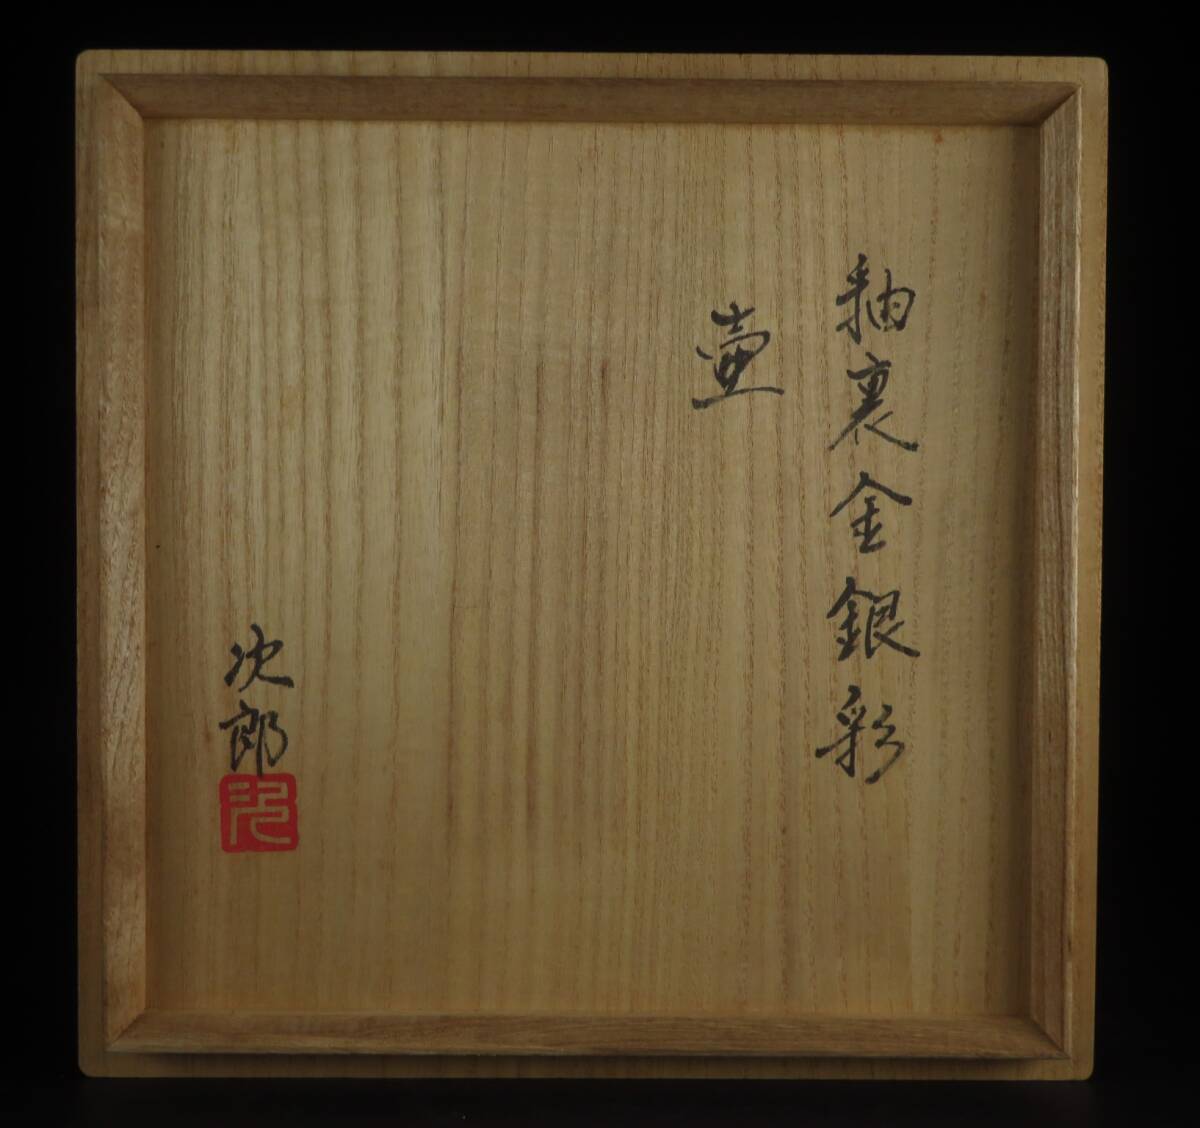 釉裏金銀彩
壷
次郎